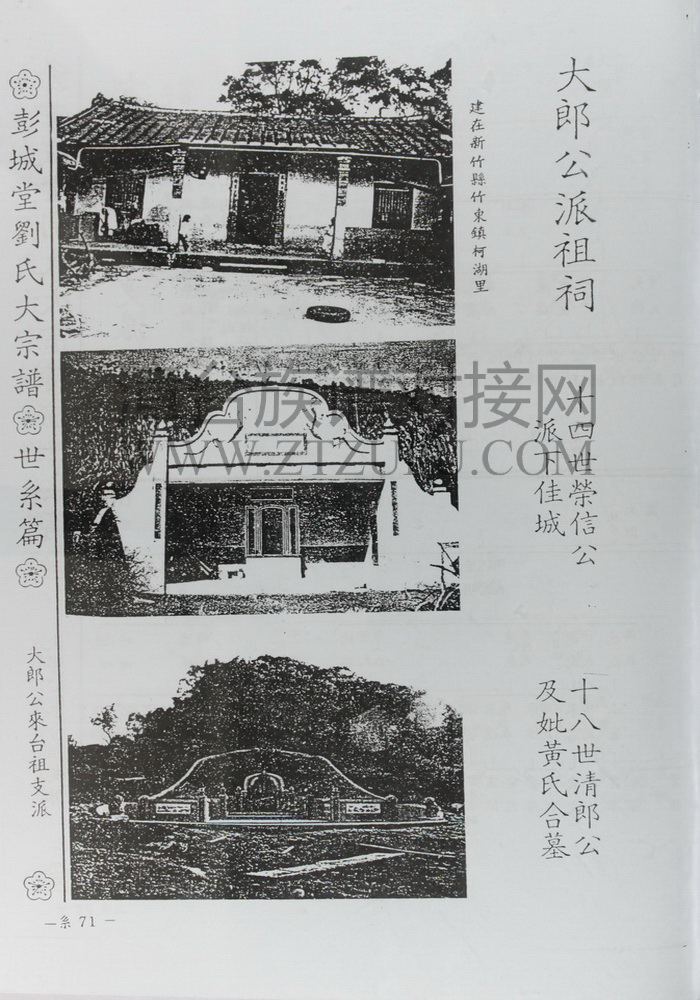 大郎公派祖祠
建在新竹縣竹東鎮柯湖里
十四世榮信公
派下佳城
十八世清郎公
及妣黃氏合墓
彭城堂劉氏大宗譜
世系篇
大郎公來台祖支派
—系 71 —
两台族谱对接网
WWW.ZTZUPU.COM